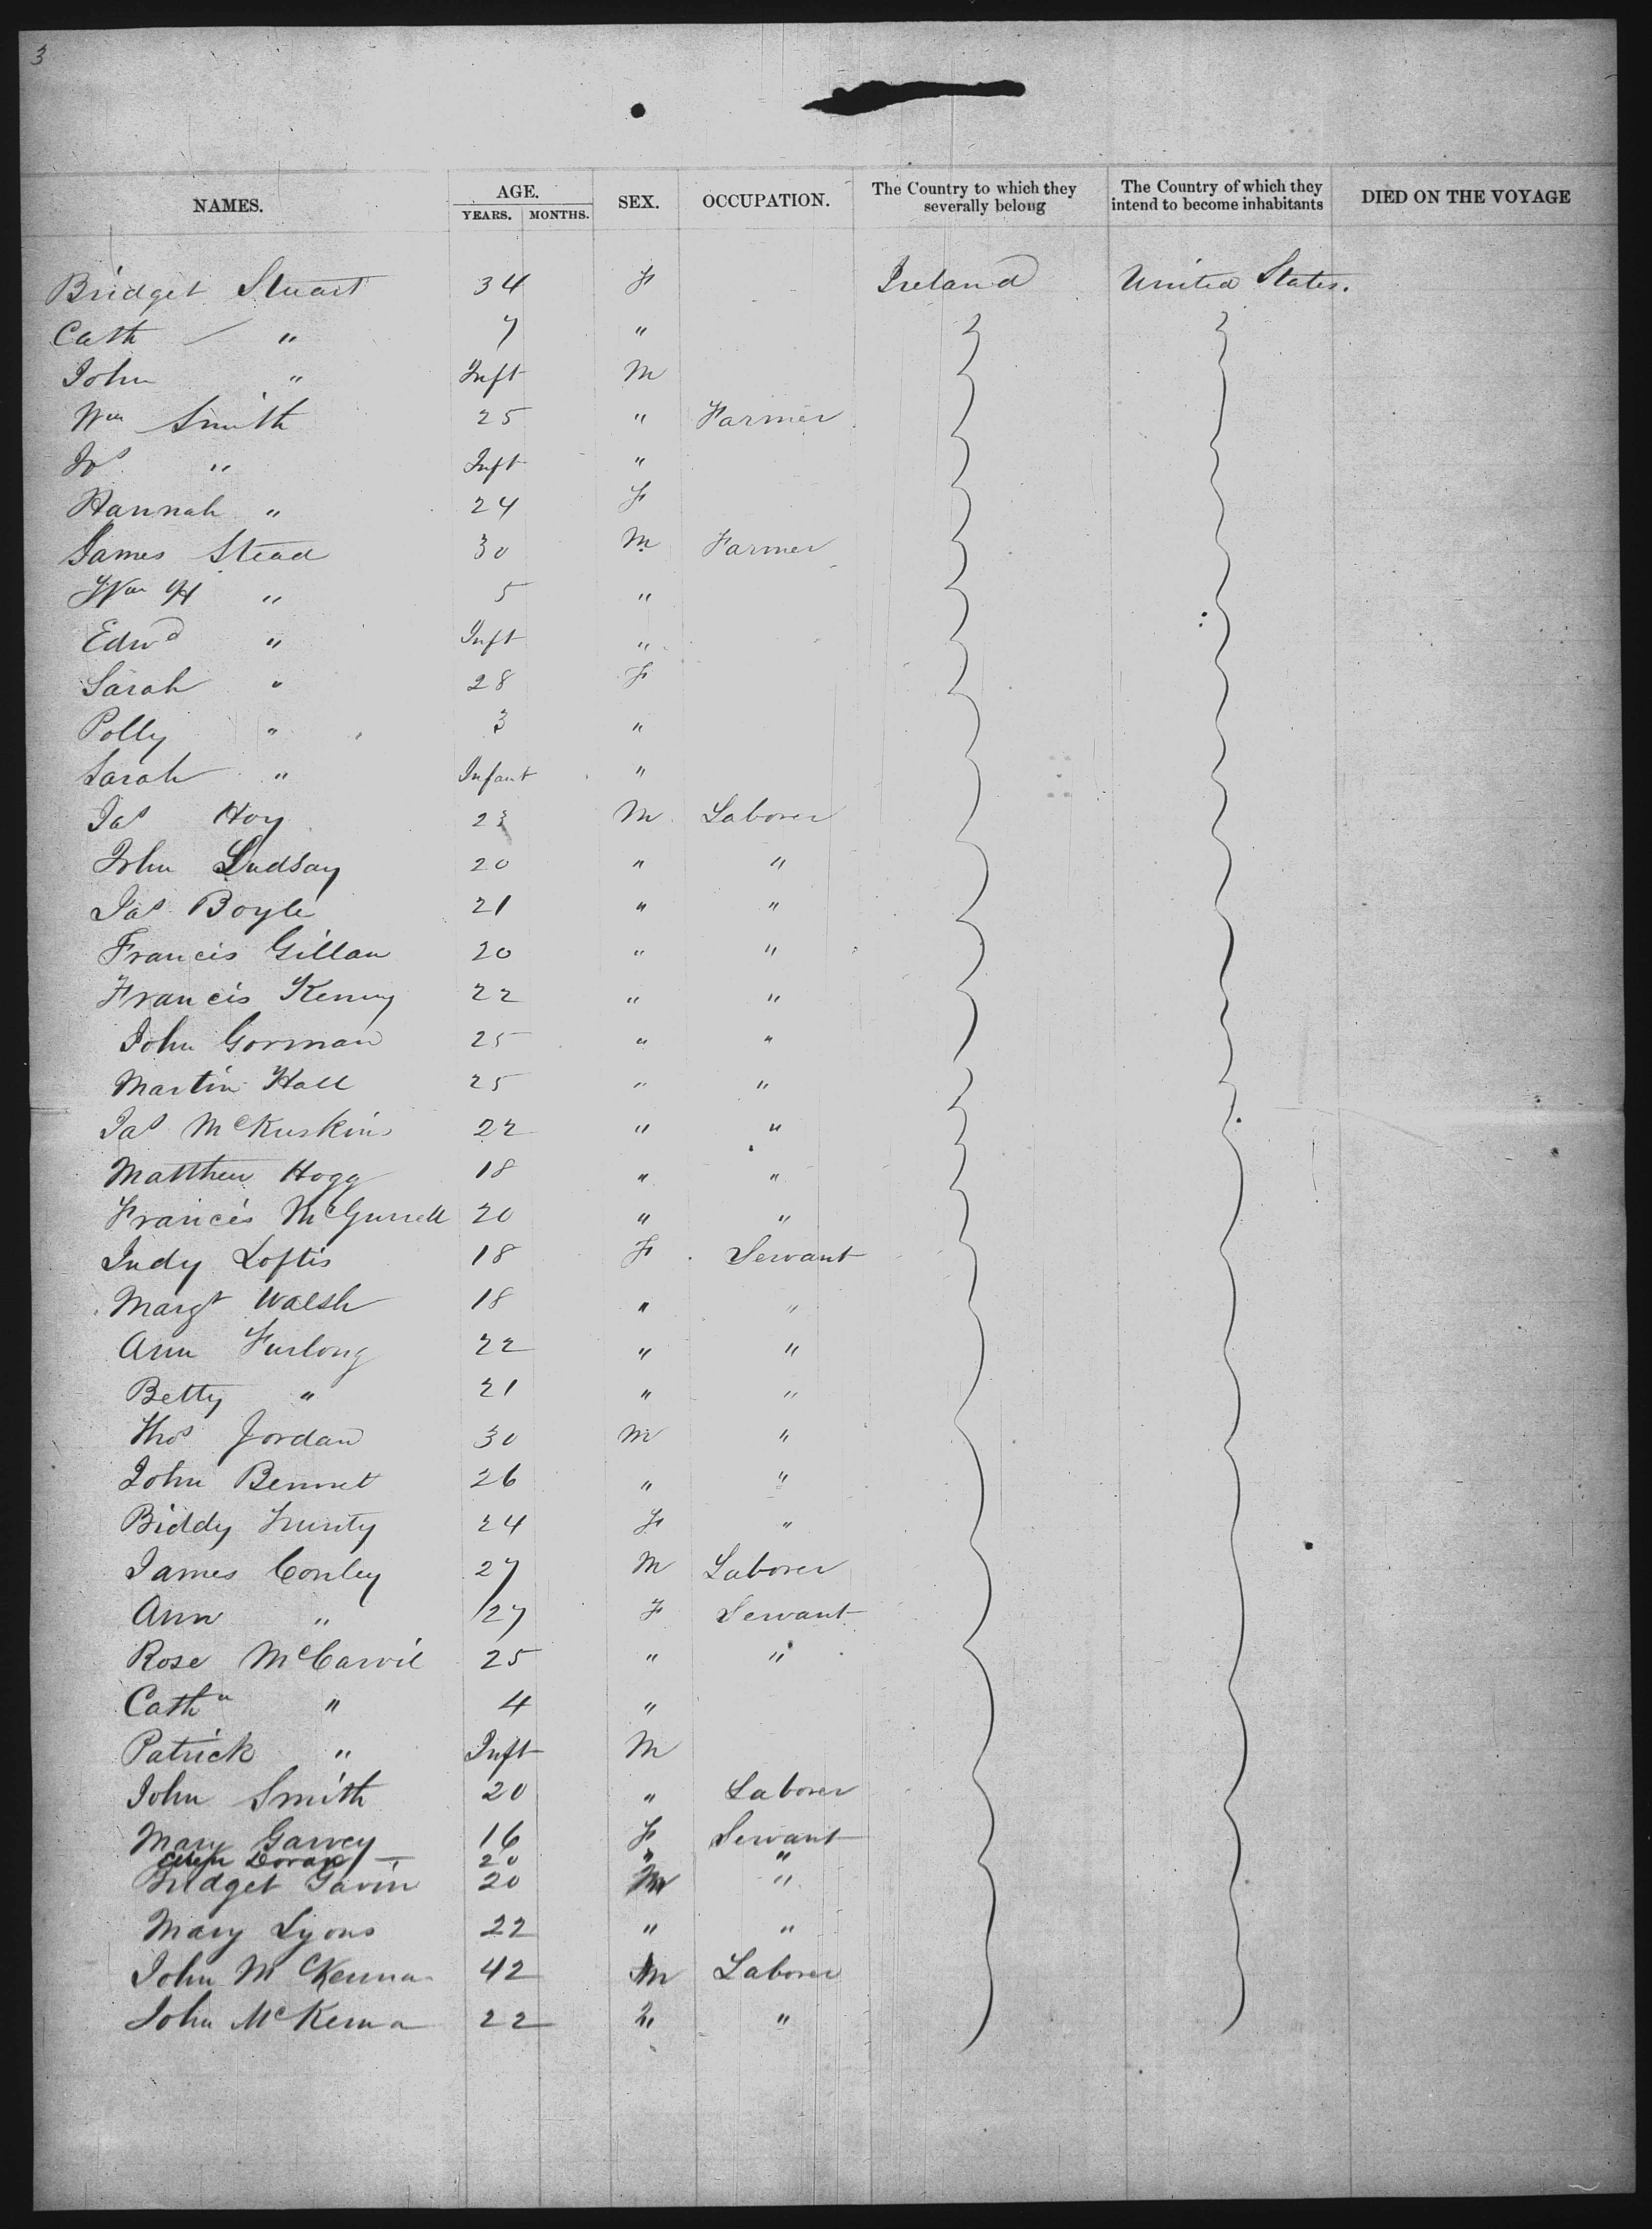 3
NAMES. AGE. YEARS. MONTHS. SEX. OCCUPATION. The Country to which they severally belong The Country of which they intend to become inhabitants DIED ON THE VOYAGE
Bridget Stuart 34 F Ireland United States.
Cath " 7 "
John " Inft M
Wm Smith 25 " Farmer
Jos " Inft "
Hannah " 24 F
James Stead 30 M Farmer
Wm H " 5 "
Edwd " Inft "
Sarah " 28 F
Polly " 3 "
Sarah " Infant "
Jas Hoy 23 M Laborer
John Lindsay 20 " "
Jas Boyle 21 " "
Francis Gillan 20 " "
Francis Kenny 22 " "
John Gorman 25 " "
Martin Hall 25 " "
Jas McKuskins 22 " "
Matthew Hogg 18 " "
Francis McGurrell 20 " "
Judy Loftis 18 F Servant
Margt Walsh 18 " "
Ann Furlong 22 " "
Betty " 21 " "
Thos Jordan 30 M "
John Bennet 26 " "
Biddy 24 F "
James Conley 27 M Laborer
Ann " 27 F Servant
Rose McCarvil 25 " "
Cathn " 4 "
Patrick " Inft M
John Smith 20 " Laborer
Mary Garvey 16 F Servant
Doran 20 " "
Bridget Gavin 20 "
Mary Lyons 22 " "
John McKenna 42 M Laborer
John McKenna 22 " "